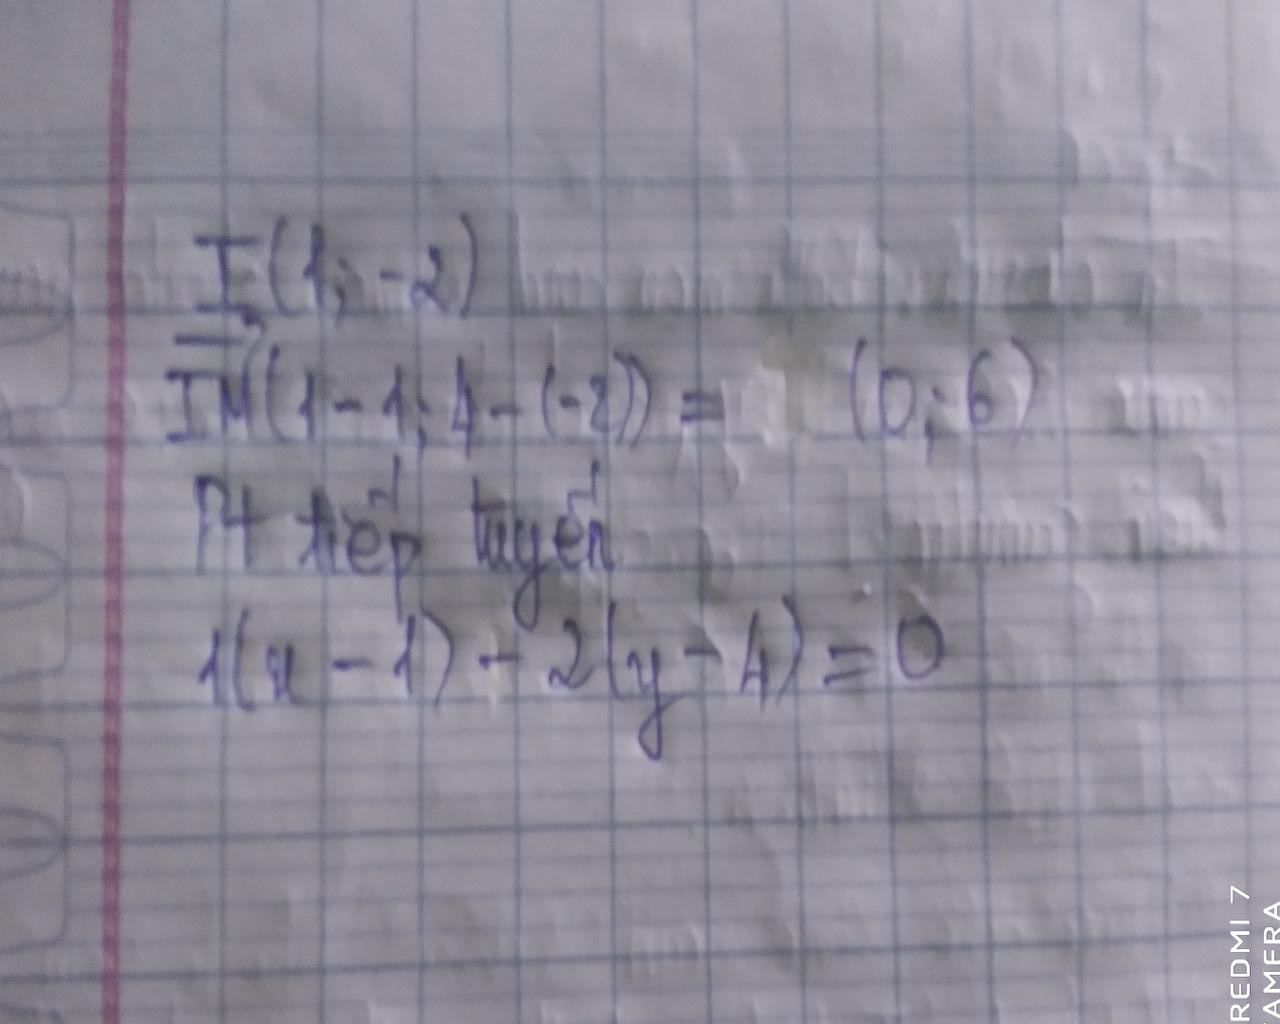 I(1; -2)
IM(1-1; 4-(-2)) = (0; 6)
Pt tiếp tuyến
1(x - 1) - 2(y - 4) = 0
REDMI 7
AMERA